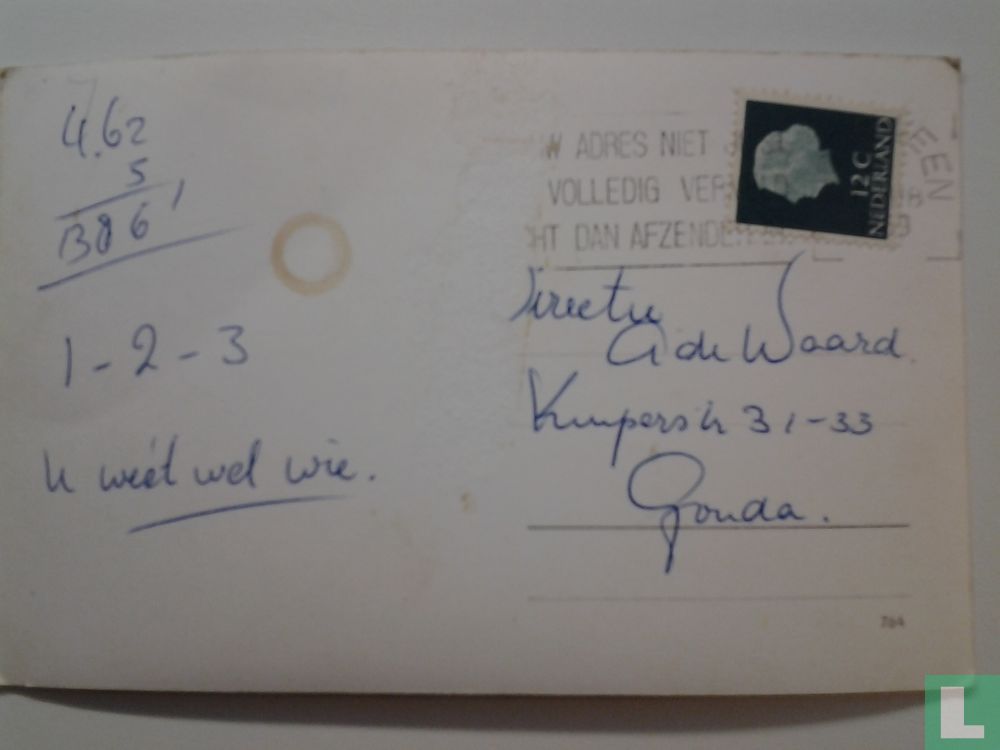 4.62
5
1386
1-2-3
U weet wel wie.
W ADRES NIET
VOLLEDIG VER
HT DAN AFZENDER
EEN
12 C
NEDERLAND
Directie
A de Waard.
Kuiperstr 31-33
Gouda.
764
L